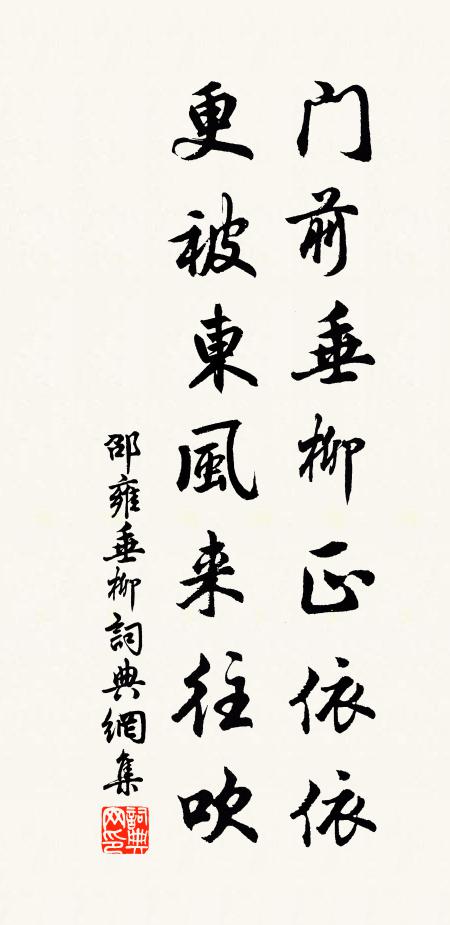 門前垂柳正依依
更被東風来往吹
邵雍垂柳詞典網集
詞典
网印